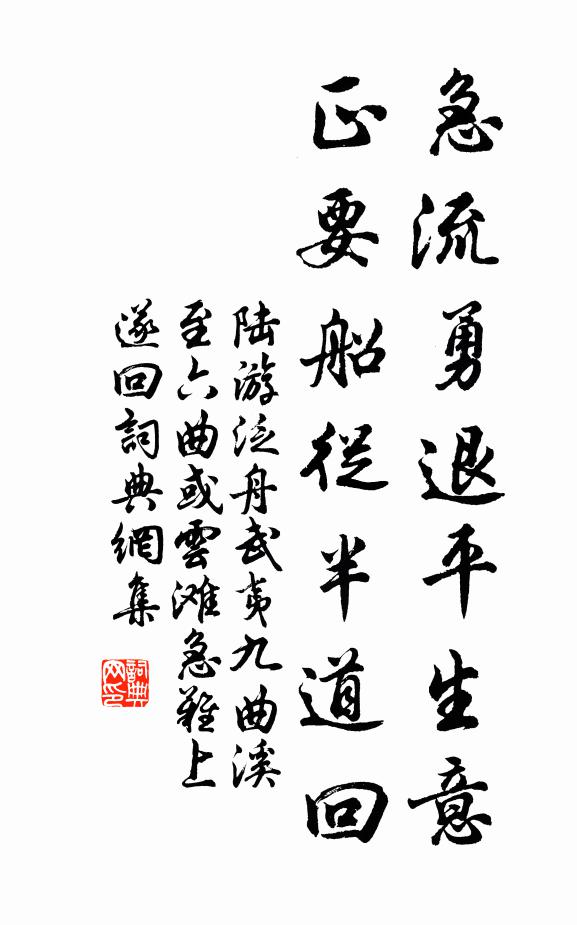 急流勇退平生意
正要船從半道回
陆游泛舟武夷九曲溪
至六曲或雲滩急難上
遂回詞典網集
詞典
网印